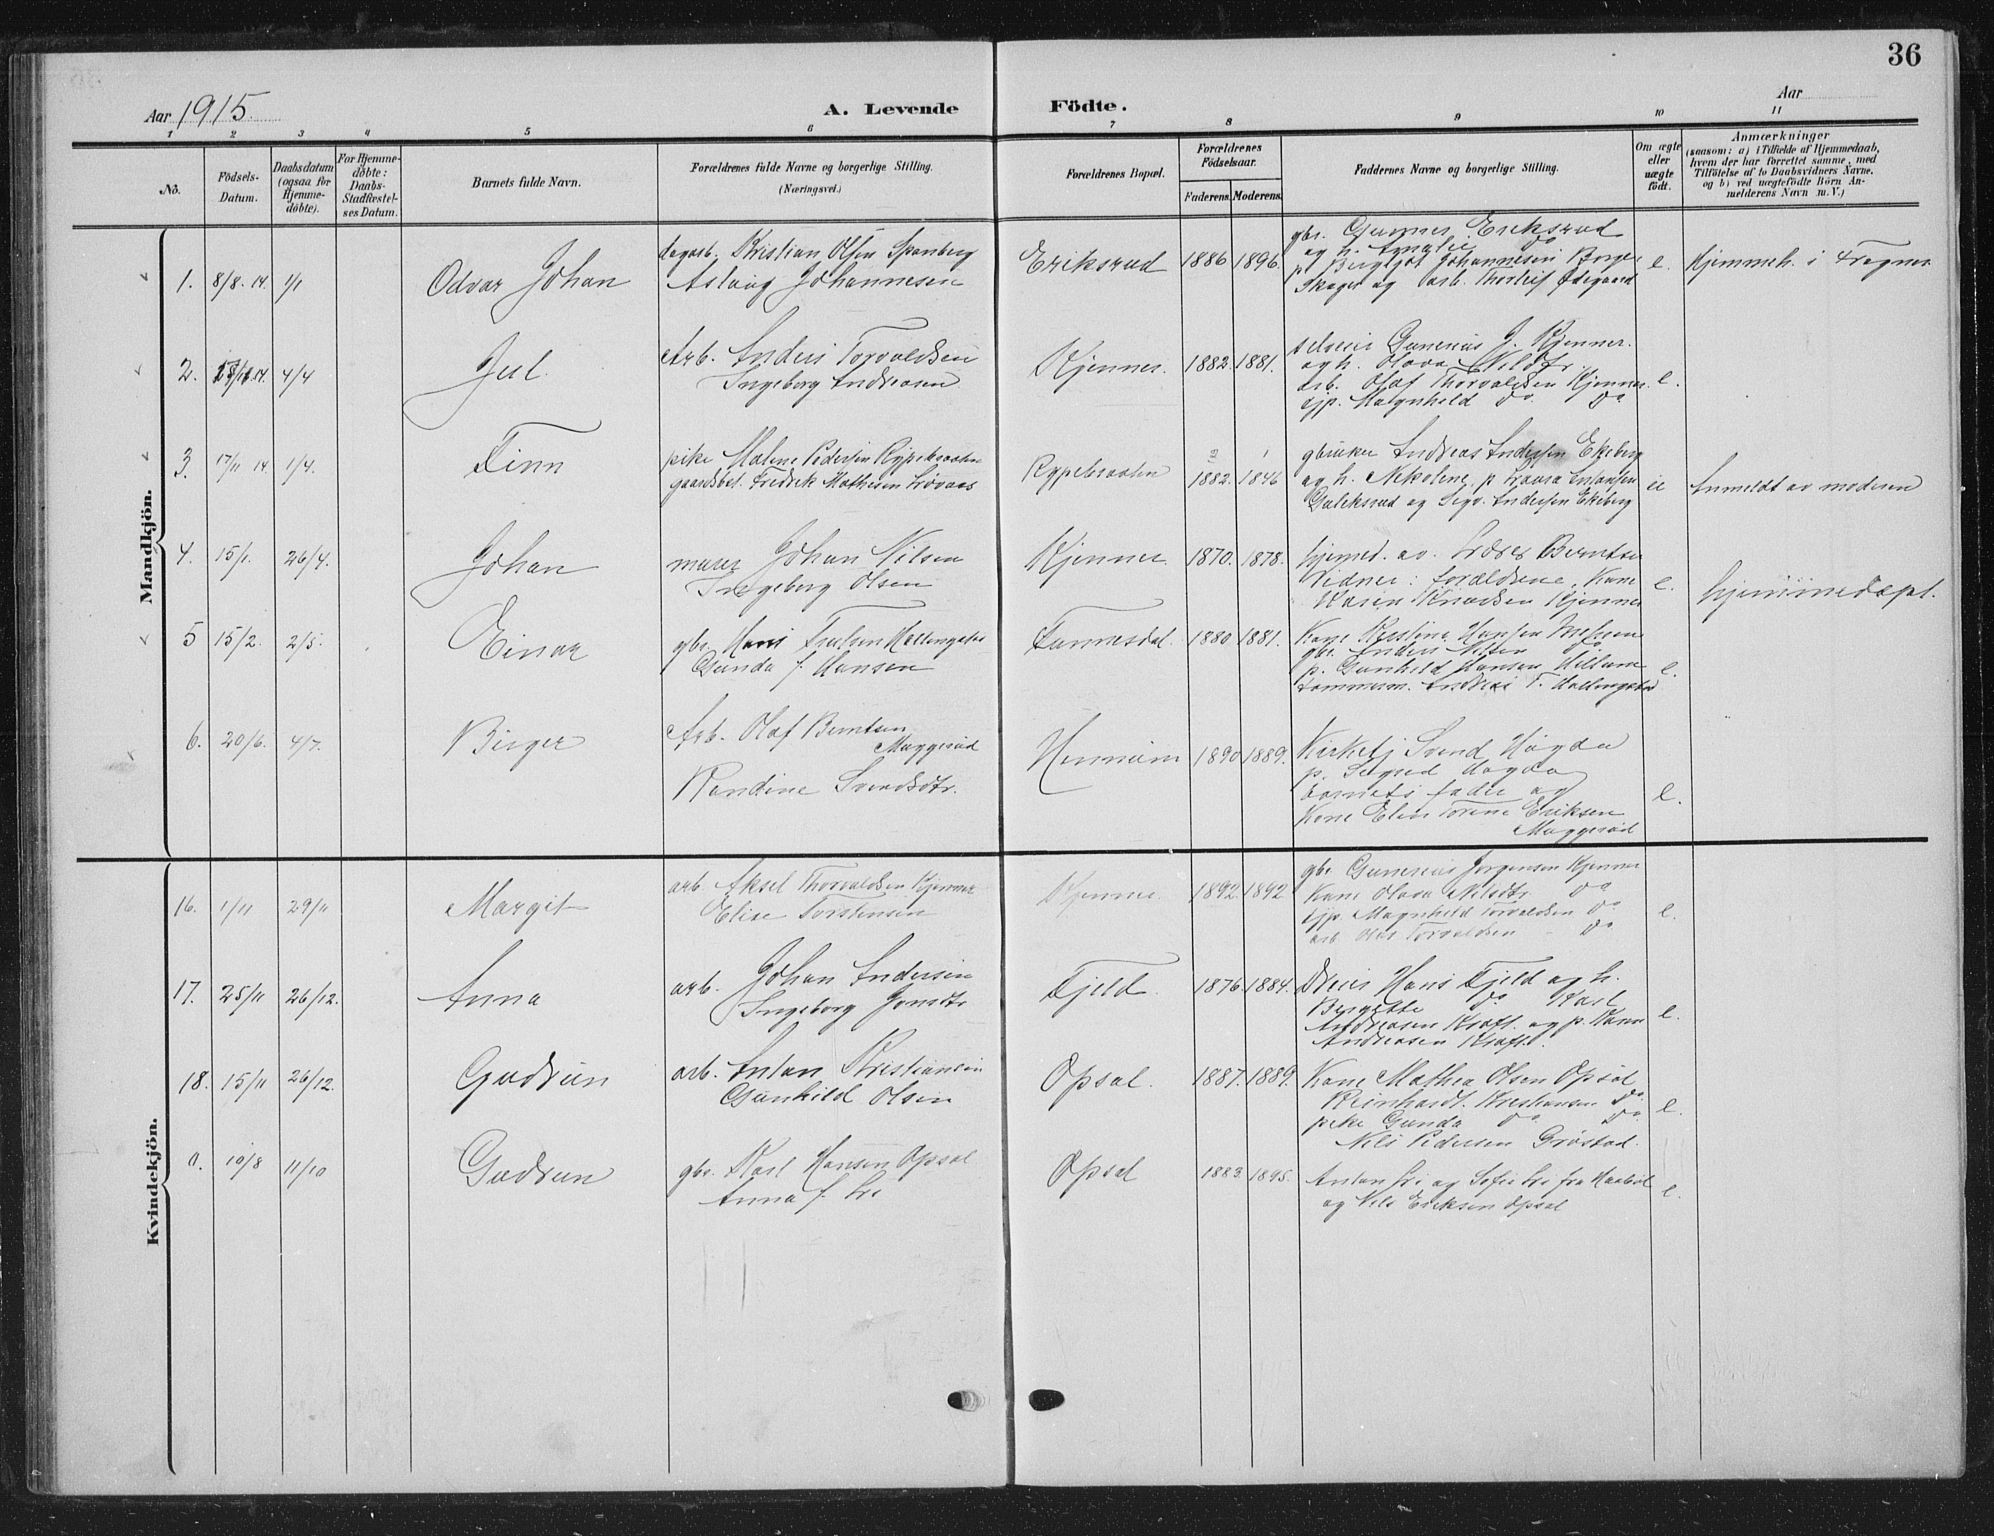 36
Aar 1915. A. Levende Födte. Aar
1 2 3 4 5 6 7 8 9 10 11
No.
Födsels-
Datum.
Daabsdatum
(ogsaa for
Hjemme-
döbte).
For Hjemme-
döbte:
Daabs-
Stadfæstel-
ses Datum.
Barnets fulde Navn.
Forældrenes fulde Navne og borgerlige Stilling.
(Næringsvei.)
Forældrenes Bopæl.
Forældrenes
Födselsaar.
Faderens. Moderens.
Faddernes Navne og borgerlige Stilling.
Om ægte
eller
uægte
födt.
Anmærkninger
(saasom: a) i Tilfælde af Hjemmedaab,
hvem der har forrettet samme, med
Tilföielse af to Daabsvidners Navne,
og b) ved uægtefödte Börn An-
melderens Navn m. V.)
Mandkjön.
1. 8/8. 14. 1/1 Odvar Johan
dagarb. Kristian Olsen Spanberg
Aslaug Johannesen
Eriksrud 1886 1896
gbr. Gunner Eriksrud
og h. Amalie do
p. Bergljot Johannesen Borge
Skoger og arb. Thorleif Ødegaard
e. Hjemmeh. i Frogner
2. 14. 4/4 Jul.
Arb. Anders Torvaldsen
Ingeborg Andreasen
Kjenner. 1882. 1881.
selveier Gunerius J. Kjenner.
og h. Olava Nilsdtr.
arb. Olaf Thorvaldsen Kjenner.
tjp. Magnhild do. do
e.
3. 17/11 14. 1/4. Finn
pike Malene Pedersen Rypebraaten
gaardsbest. Fredrik Mathesen
Rypebraaten 2 1
1882. 1846
gbruker Andreas Andersen Ekeberg
og h. Nikoline, p. Laura
og Sigv. Andersen Ekeberg
ue Anmeldt av moderen
4. 15/1. 26/4. Johan
murer Johan Nilsen
Ingeborg Olsen
Kjenner 1870. 1878.
hjemmed. av. Lærer Berntsen
Vidner: forældrene, Kone
Karen Knudsen Kjenner
e. hjemmedøpt.
5 15/2. 2/5. Einar
gbr. Hans Hallingstad
Gunda f. Hansen
Tannesdal. 1880 1881.
Kone Kristine Hansen
gbr. Anders Nilsen do.
p. Gunhild Hansen
tømmerm. Andreas T. Hallingstad
e.
6. 20/6. 4/7. Birger
Arb. Olaf Berntsen
Maggerud
Randine Svendsdtr.
1890 1889.
Kirketj Svend Høgda
p. Sigrid Høgda
barnets fader og
Kone Elen Torine Eriksen
Maggerud
e.
Kvindekjön.
16. 1/11 29/11 Margit
arb Aksel Thorvaldsen Kjenner
Elise Torstensen
Kjenner 1892. 1892
gbr. Gunerius Jørgensen Kjenner
Kone Olava Nilsdtr. do
tjp. Magnhild Torvaldsen do
arb. Olaf Torvaldsen - do
e.
17. 25/11 26/12. Anna
arb. Johan Andersen
Ingeborg Jonsdtr
Fjeld. 1876. 1884.
Hans Fjeld og h.
Bergitte do Karl
Andreasen Kraft. og p.
Andreasen Kraft.
e.
18. 15/11 26/12. Gudrun
arb. Anton Kristiansen
Gunhild Olsen
Opsal. 1887. 1889.
Kone Mathea Olsen Opsal
Reinhardt. Kristiansen do.
pike Gunda do do
Nils Pedersen Grøstad.
e.
0. 10/8 11/10 Gudrun
gbr. Karl Hansen Opsal
Anna f. Lie
Opsal 1883. 1895.
Anton Lie og Sofie Lie fra
og Nils Eriksen Opsal
e.